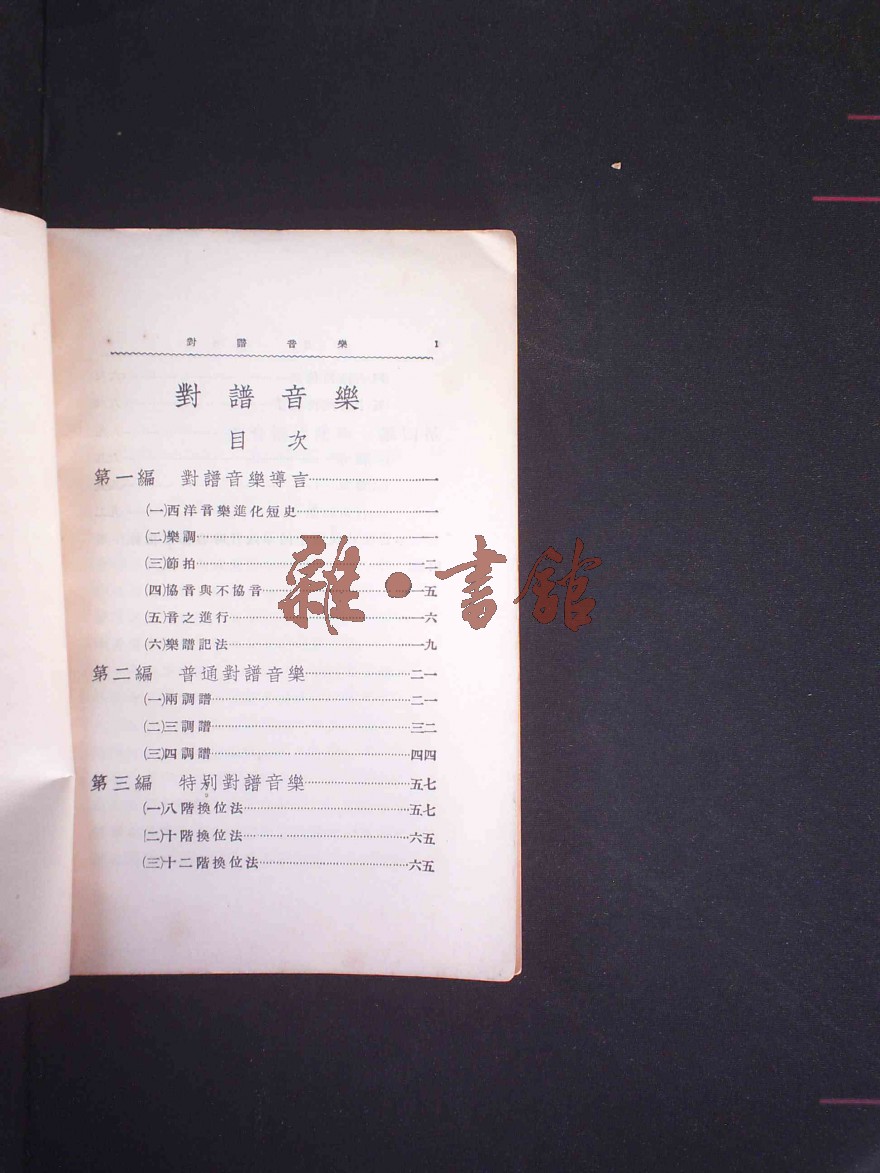 對譜音樂 1
對譜音樂
目次
第一編 對譜音樂導言………一
㈠西洋音樂進化短史………一
㈡樂調………一
㈢節拍………二
㈣協音與不協音………五
㈤音之進行………六
㈥樂譜記法………一九
第二編 普通對譜音樂………二一
㈠兩調譜………二一
㈡三調譜………三二
㈢四調譜………四四
第三編 特别對譜音樂………五七
㈠八階換位法………五七
㈡十階換位法………六五
㈢十二階換位法………六五
雜·書館